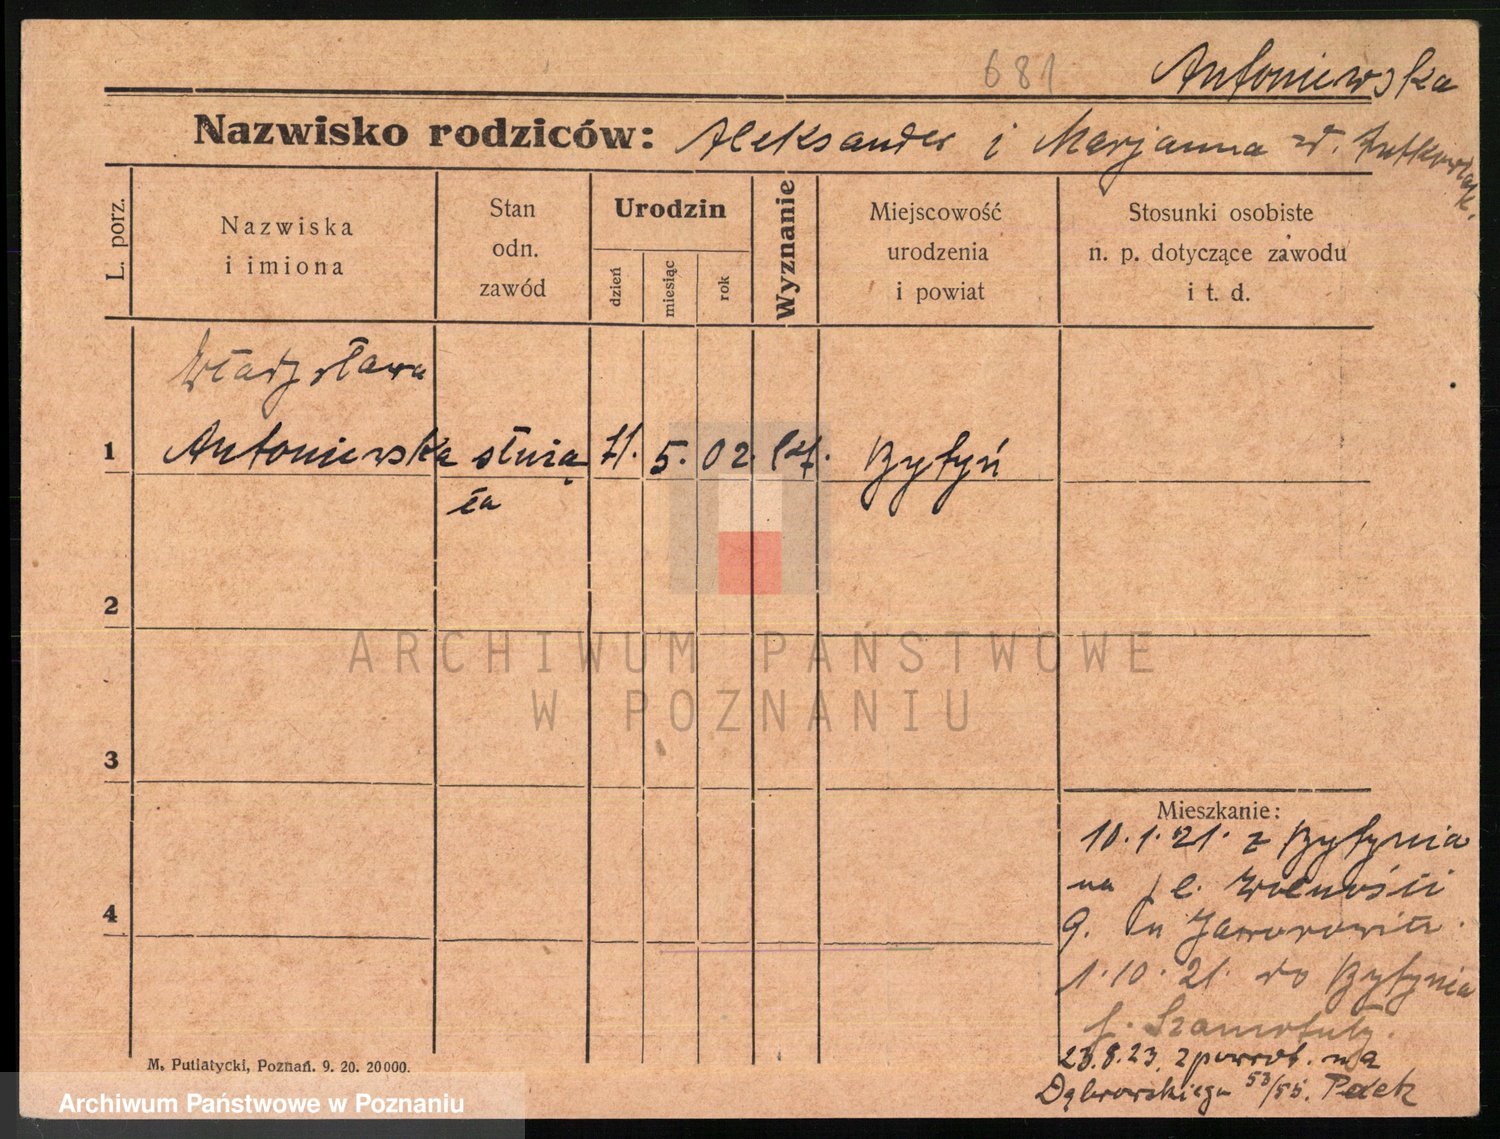 681
Antoniewska
Nazwisko rodziców: Aleksander i Marjanna
L. porz.
Nazwiska
i imiona
Stan
odn.
zawód
Urodzin
dzień
miesiąc
rok
Wyznanie
Miejscowość
urodzenia
i powiat
Stosunki osobiste
n. p. dotyczące zawodu
i t. d.
Władysława
1 Antoniewska służą 5. 02. Bytyń
ca
2
3
4
Mieszkanie:
10.1.21. z Bytynia
na pl. Wolności
9.
1.10.21. do Bytynia
p. Szamotuły.
23.8.23. z powrot. na
Dąbrowskiego 53/55.
M. Putiatycki, Poznań. 9. 20. 20000.
ARCHIWUM PAŃSTWOWE
W POZNANIU
Archiwum Państwowe w Poznaniu